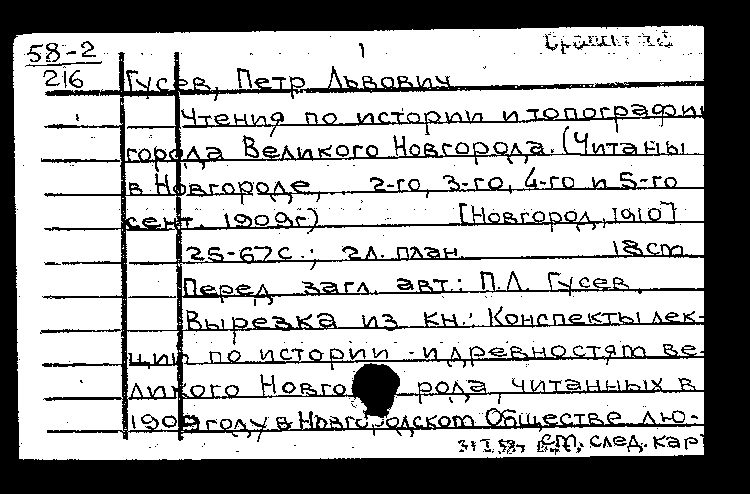 58-2 1
216 Гусев, Петр Львович
Чтения по истории и топографии
города Великого Новгорода. (Читаны
в Новгороде, 2-го, 3-го, 4-го и 5-го
сент. 1909г) [Новгород, 1910]
25-67с.; 2л. план 18cm
Перед загл. авт.: П.Л. Гусев.
Вырезка из кн.: Конспекты лек-
ции по истории и древностям ве-
ликого Новгорода, читанных в
1909 году в Новгородском Обществе лю-
см, след. кар